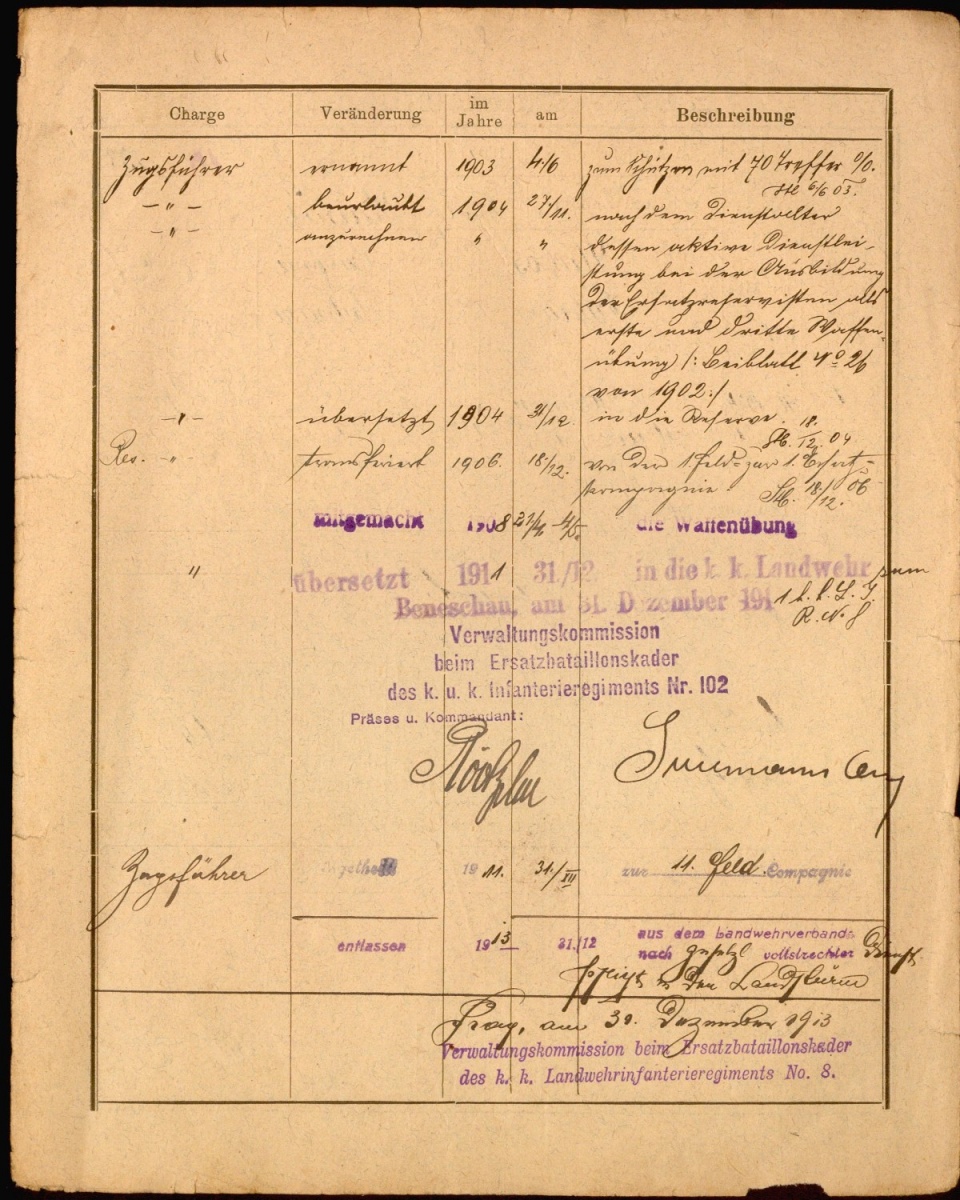 Charge Veränderung im Jahre am Beschreibung
Zugsführer ernannt 1903 4/6 zum Schützen mit 70 Treffer %.
6/6 03.
—"— beurlaubt 1904 27/11. nach dem Dienstalter
—"— anzurechnen " " dessen aktive Dienstlei-
stung bei der Ausbildung
der Ersatzreservisten als
erste und dritte Waffen-
übung /: Beiblatt No 26
von 1902 :/
—"— übersetzt 1904 31/12. in die Reserve.
18. 12. 04
Res. —"— transferiert 1906. 18./12. von der 1. Feld= zur 1. Ersatz=
kompagnie. 18/12. 06
mitgemacht 1908 die Waffenübung
" übersetzt 1911 31/12. in die k. k. Landwehr zum
Beneschau, am 31. Dezember 1911 k. k. L. I.
R. N. 8
Verwaltungskommission
beim Ersatzbataillonskader
des k. u. k. Infanterieregiments Nr. 102
Präses u. Kommandant:
Zugsführer 1911. 31./XII zur 11. Feld Compagnie
entlassen 1913 31./12 aus dem Landwehrverbande
nach gesetzl vollstreckter Dienst-
pflicht in den Landsturm
Prag, am 31. Dezember 1913
Verwaltungskommission beim Ersatzbataillonskader
des k. k. Landwehrinfanterieregiments No. 8.